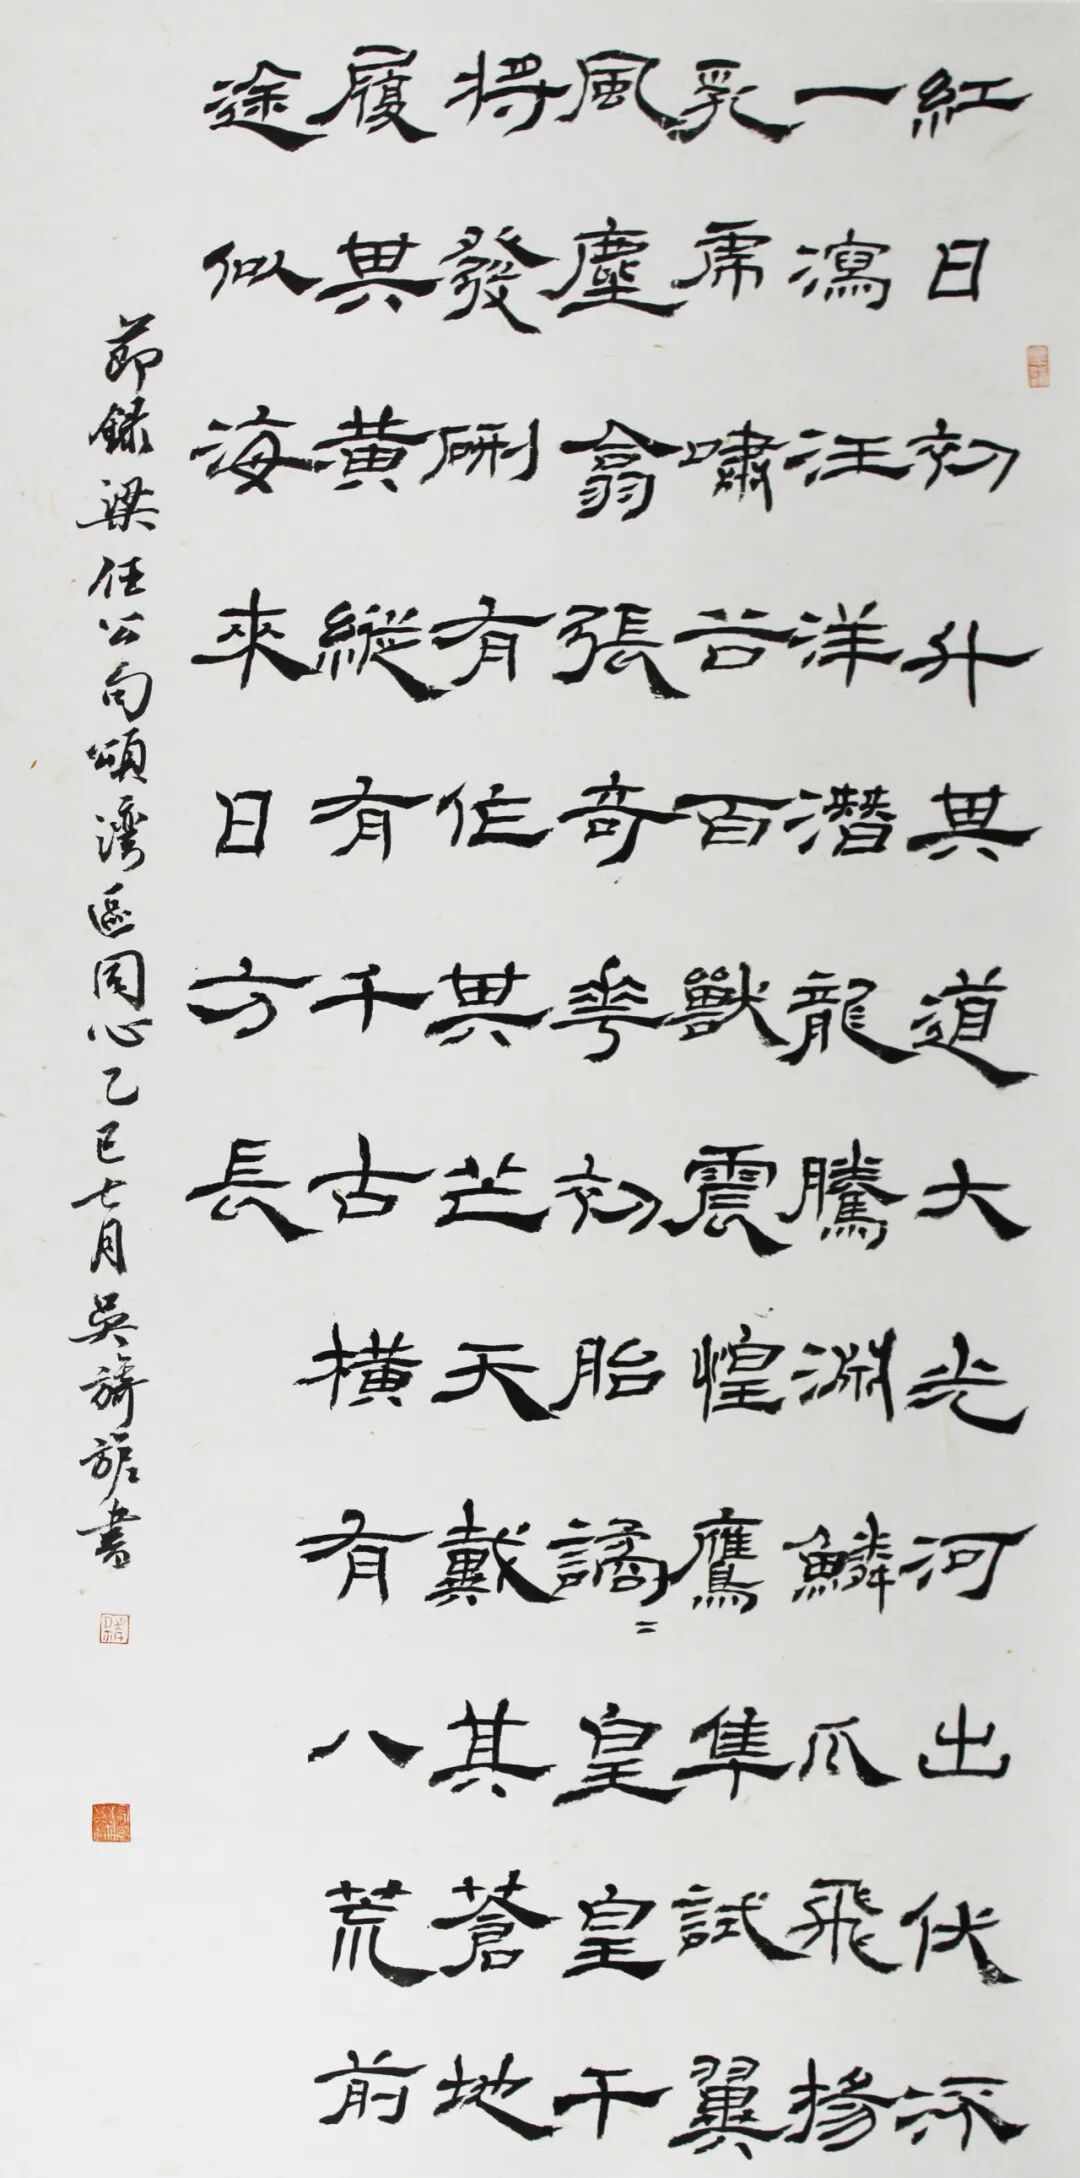 紅日初升其道大光河出伏流
一瀉汪洋潛龍騰淵鱗爪飛揚
乳虎嘯谷百獸震惶鷹隼試翼
風塵翕張奇華初胎譎〻皇皇干
將發硎有作其芒天戴其蒼地
履其黃縱有千古橫有八荒前
途似海來日方長
節錄梁任公句頌灣區同心乙巳七月吳旖旎書